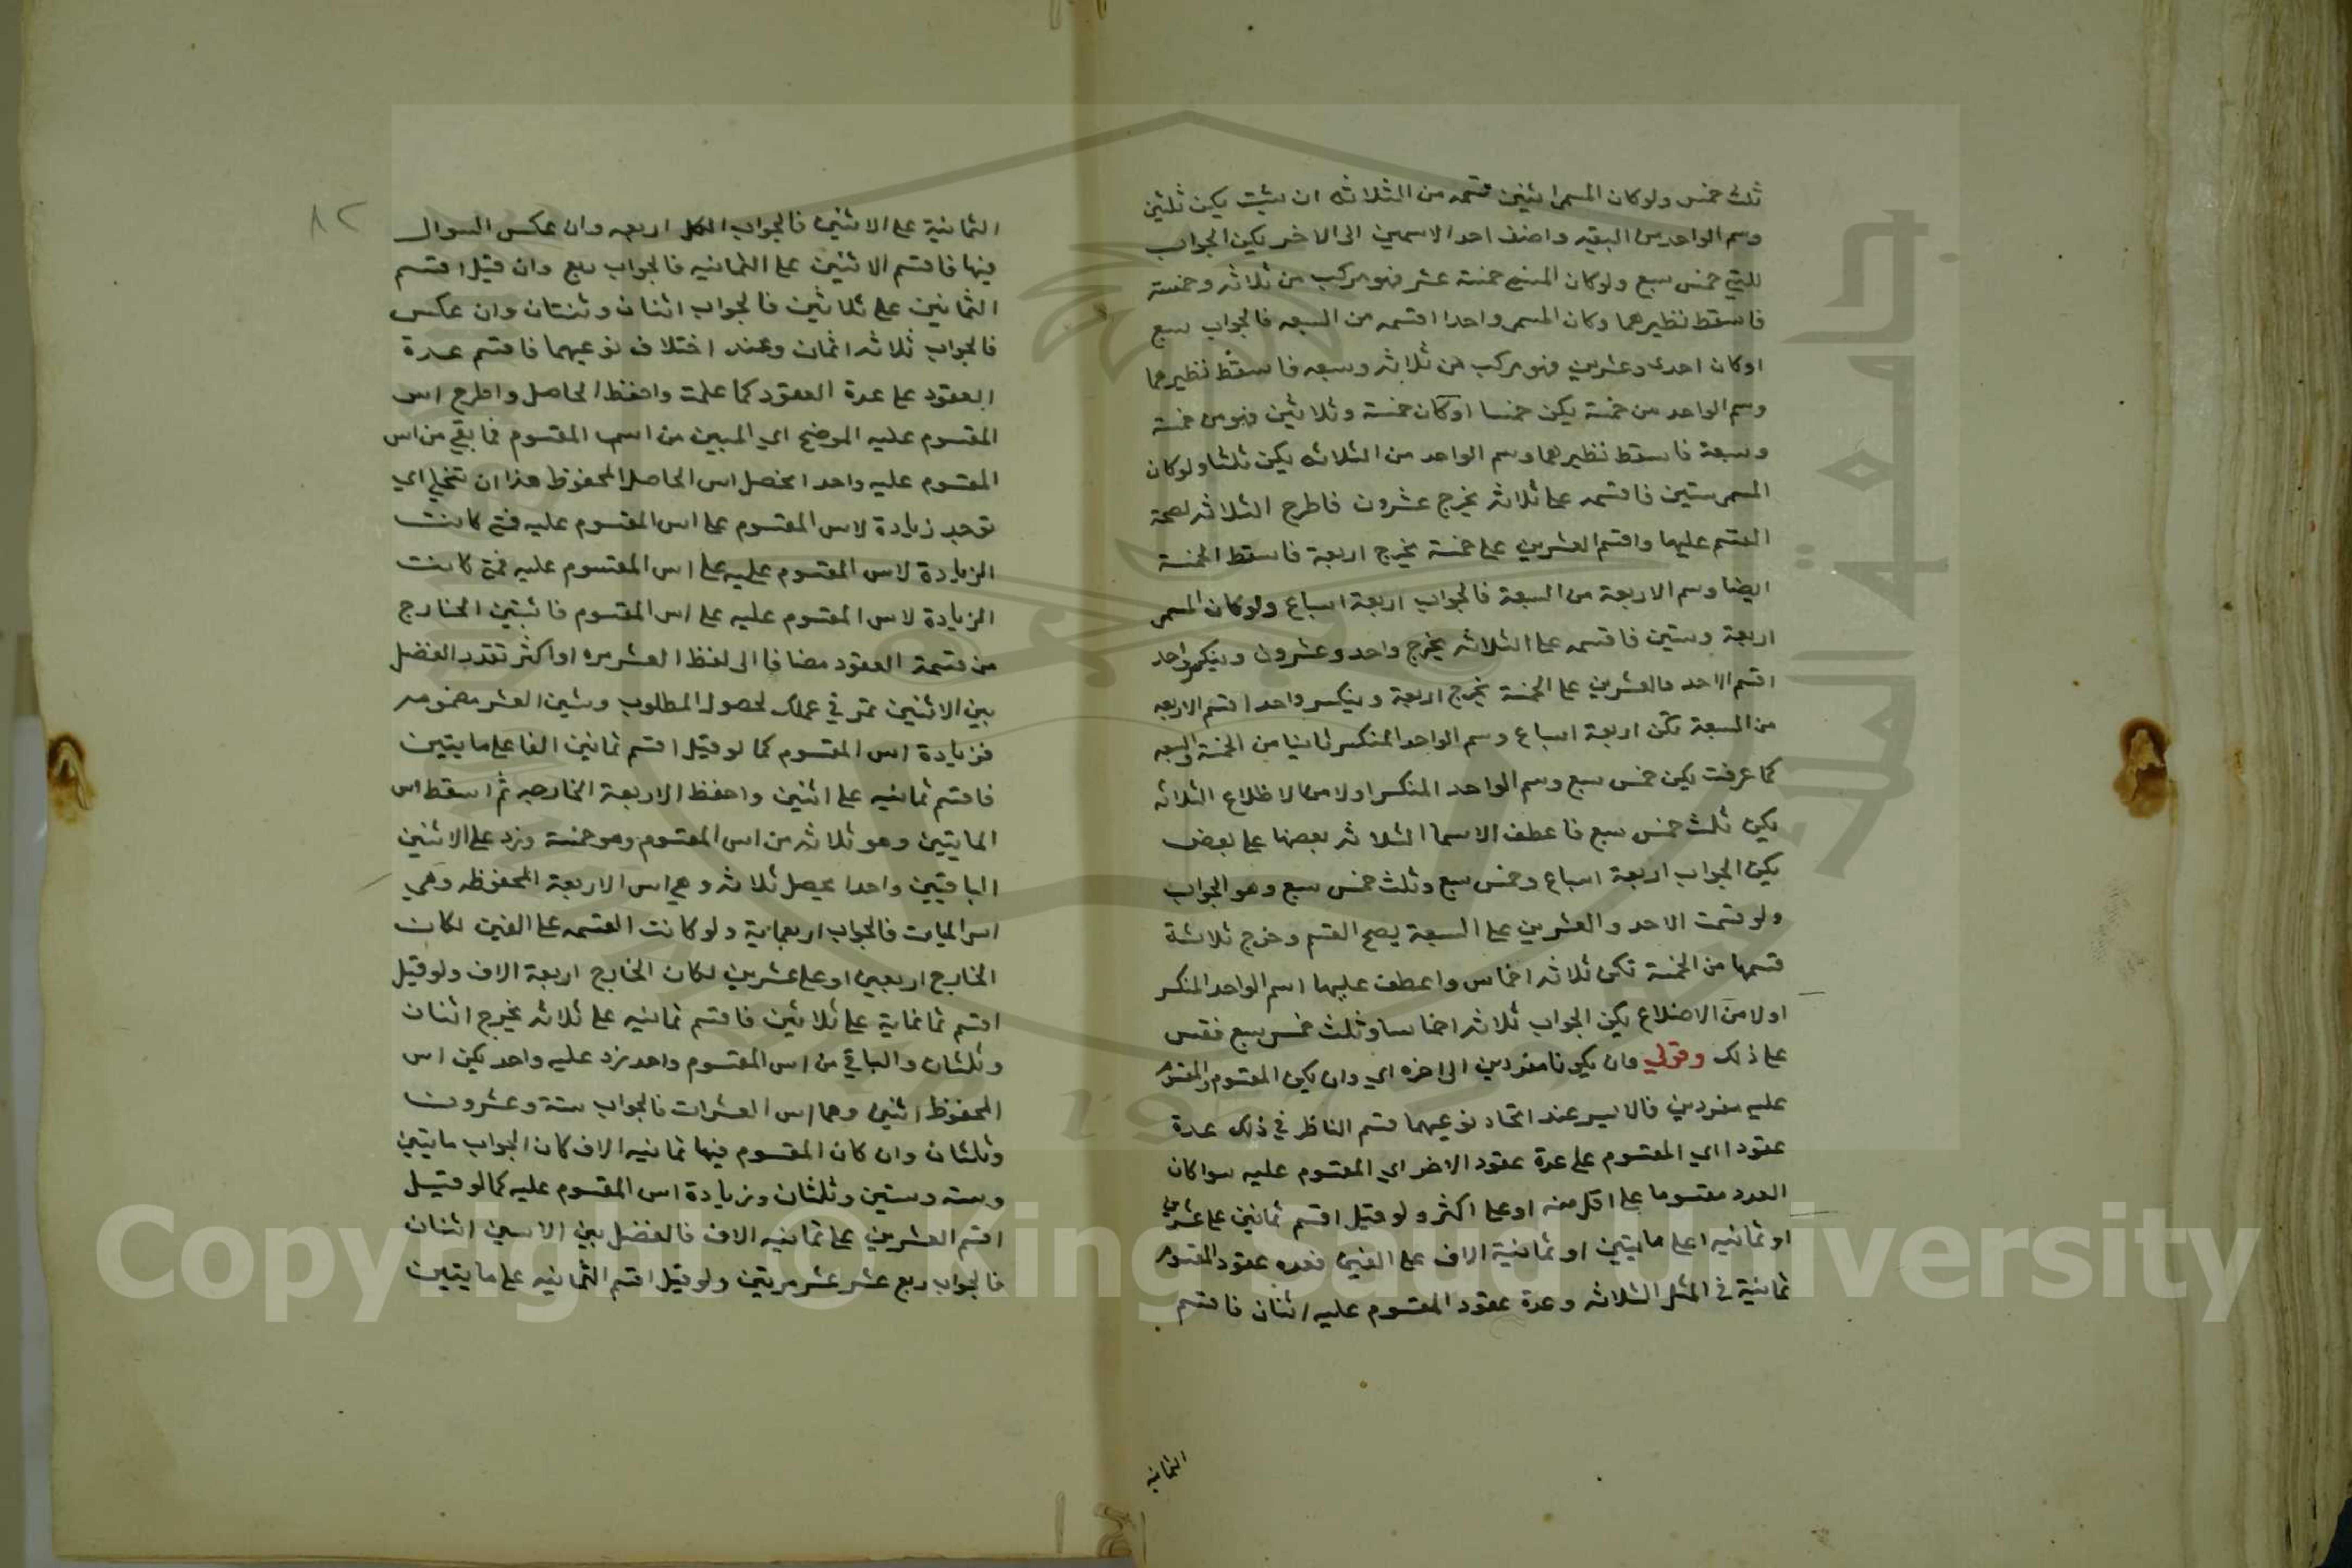 ثلث خمس ولو كان المسمى اثنين قسمه من الثلاثه ان شيت يكن ثلثين
وسم الواحد من البقيه واضف احد الاسمين الى الاخر يكن الجواب
ثلثي خمس سبع ولو كان المسمى خمسة عشر فهو مركب من ثلاثه وخمسة
فاسقط نظيرهما وكان المسمى واحدا اقسمه من السبعه فالجواب سبع
او كان احدى وعشرين فهو مركب من ثلاثه وسبعه فاسقط نظيرهما
وسم الواحد من خمسة يكن خمسا او كان خمسة وثلاثين فهو من خمسة
وسبعة فاسقط نظيرهما وسم الواحد من الثلاثه يكن ثلثا ولو كان
المسمى ستين فاقسمه على ثلاثه يخرج عشرون فاطرح الثلاثه لصحة
القسم عليها واقسم العشرين على خمسة يخرج اربعة فاسقط الخمسة
ايضا وسم الاربعة من السبعة فالجواب اربعة اسباع ولو كان المسمى
اربعة وستين فاقسمه على الثلاثه يخرج واحد وعشرون وينكسر واحد
اقسم الاحد والعشرين على الخمسة يخرج اربعة وينكسر واحد اقسم الاربعه
من السبعة تكن اربعة اسباع وسم الواحد المنكسر ثانيا من الخمسة والسبعه
كما عرفت يكن خمس سبع وسم الواحد المنكسر اولا من الاظلاع الثلاثه
يكن ثلث خمس سبع فاعطف الاسما الثلاثه بعضها على بعض
يكن الجواب اربعة اسباع وخمس سبع وثلث خمس سبع وهو الجواب
ولو قسمت الاحد والعشرين على السبعة يصح القسم وخرج ثلاثة
قسمها من الخمسة تكن ثلاثه اخماس واعطف عليها اسم الواحد المنكسر
اولا من الاضلاع يكن الجواب ثلاثه اخماسا وثلث خمس سبع فقس
على ذلك وقولي وان يكونا مفردين الى اخره اي وان يكن المقسوم والمقسوم
عليه مفردين فالايسر عند اتحاد نوعيهما قسم الناظر في ذلك عدة
عقود ا اي المقسوم على عدة عقود الاخر اي المقسوم عليه سوا كان
العدد مقسوما على اقل منه او على اكثر ولو قيل اقسم ثمانين على عشرين
او ثمانيه اعلى مايتين او ثمانية الاف على الفين فعده عقود المقسوم
ثمانية في المثل الثلاثه وعدة عقود المقسوم عليه اثنان فاقسم
الثمانيه
٨٢
الثمانية على الاثنين فالجواب الكل اربعه وان عكس السوال
فيها فاقسم الاثنين على الثمانيه فالجواب ربع وان قيل اقسم
الثمانين على ثلاثين فالجواب اثنان وثلثان وان عكس
فالجواب ثلاثه اثمان وعند اختلاف نوعيهما فاقسم عدة
العقود على عدة العقود كما علمت واحفظ الحاصل واطرح اس
المقسوم عليه الموضح اي المبين من اس المقسوم فما بقي من اس
المقسوم عليه واحد ا يحصل اس الحاصل المحفوظ هذا ان تنجلي اي
توجد زيادة لاس المقسوم على اس المقسوم عليه فمتى كانت
الزيادة لاس المقسوم عليه على اس المقسوم عليه فمتى كانت
الزيادة لاس المقسوم عليه على اس المقسوم فانسبن الخارج
من قسمة العقود مضافا الى لفظ العشر مره او اكثر بقدر الفضل
بين الاثنين تمر في عملك لحصول المطلوب وشين العشر مضمومه
فزيادة اس المقسوم كما لو قيل اقسم ثمانين الفا على مايتين
فاقسم ثمانيه على اثنين واحفظ الاربعة الخارجه ثم اسقط اس
المايتين وهو ثلاثه من اس المقسوم وهو خمسة وزد على الاثنين
الباقيين واحدا يحصل ثلاثه وهي اس الاربعة المحفوظه وهي
اس الميات فالجواب اربعماية ولو كانت القسمه على الفين لكان
الخارج اربعين او على عشرين لكان الخارج اربعة الاف ولو قيل
اقسم ثمانماية على ثلاثين فاقسم ثمانيه على ثلاثه يخرج اثنان
وثلثان والباقي من اس المقسوم واحد زد عليه واحد يكن اس
المحفوظ اثنين وهما اس العشرات فالجواب ستة وعشرون
وثلثان وان كان المقسوم فيها ثمانيه الاف كان الجواب مايتين
وسته وستين وثلثان وزيادة اس المقسوم عليه كما لو قيل
اقسم العشرين على ثمانيه الاف فالفضل بين الاسين اثنان
فالجواب ربع عشر عشر مرتين ولو قيل اقسم الثمانيه على مايتين
Copyright © King Saud University